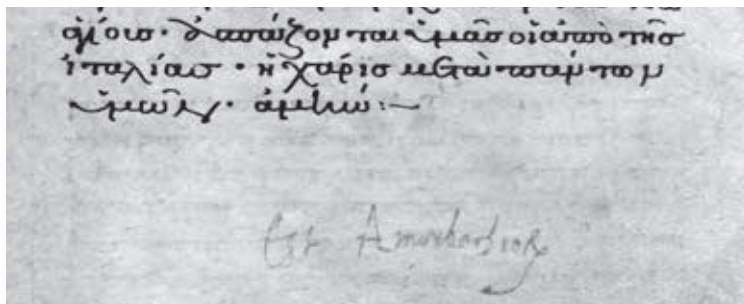 ἁγίους · ἀσπάζονται ὑμᾶς οἱ ἀπὸ τῆς
ἰταλίας · ἡ χάρις μετὰ πάντων
ὑμῶν · ἀμήν :—
Est Amorbachioꝝ